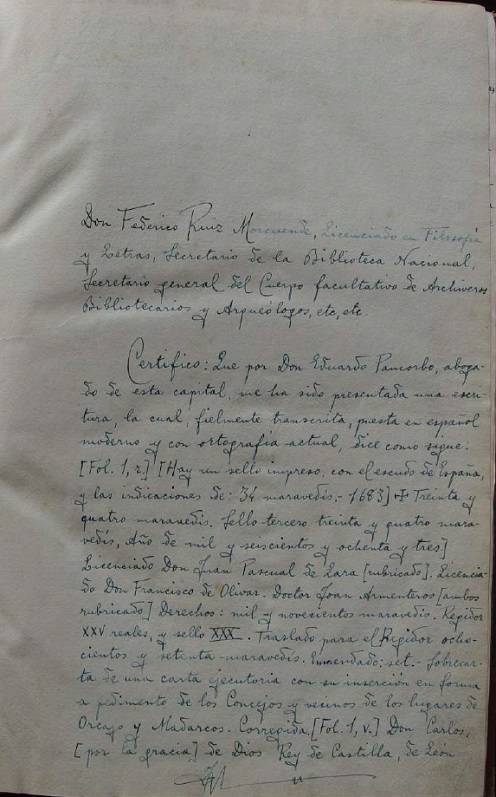 Don Federico Ruiz Morcuende, Licenciado en Filosofía
y Letras, Secretario de la Biblioteca Nacional,
Secretario general del Cuerpo facultativo de Archiveros
Bibliotecarios y Arqueólogos, etc, etc.
Certifico: Que por Don Eduardo Pancorbo, aboga-
do de esta capital, me ha sido presentada una escri-
tura, la cual, fielmente transcrita, puesta en español
moderno y con ortografía actual, dice como sigue:
[Fol. 1, r.] [Hay un sello impreso, con el escudo de España,
y las indicaciones de: 34 maravedís,- 1683] ✠ Treinta y
quatro maravedís. Sello tercero treinta y quatro mara-
vedís, Año de mil y seiscientos y ochenta y tres]
Licenciado Don Juan Pascual de Lara [rubricado]. Licencia-
do Don Francisco de Olivar. Doctor Joan Armenteros [ambos
rubricado] Derechos: mil y novecientos maravedís. Regidor
XXV reales, y sello XXX. Traslado para el Regidor ocho-
cientos y setenta maravedís. Enmendado: set.- Sobrecar-
ta de una carta ejecutoria con su inserción en forma
a pedimento de los Concejos y vecinos de los lugares de
Orcajo y Madarcos. Corregida, [Fol. 1, v.] Don Carlos,
[por la gracia] de Dios Rey de Castilla, de León